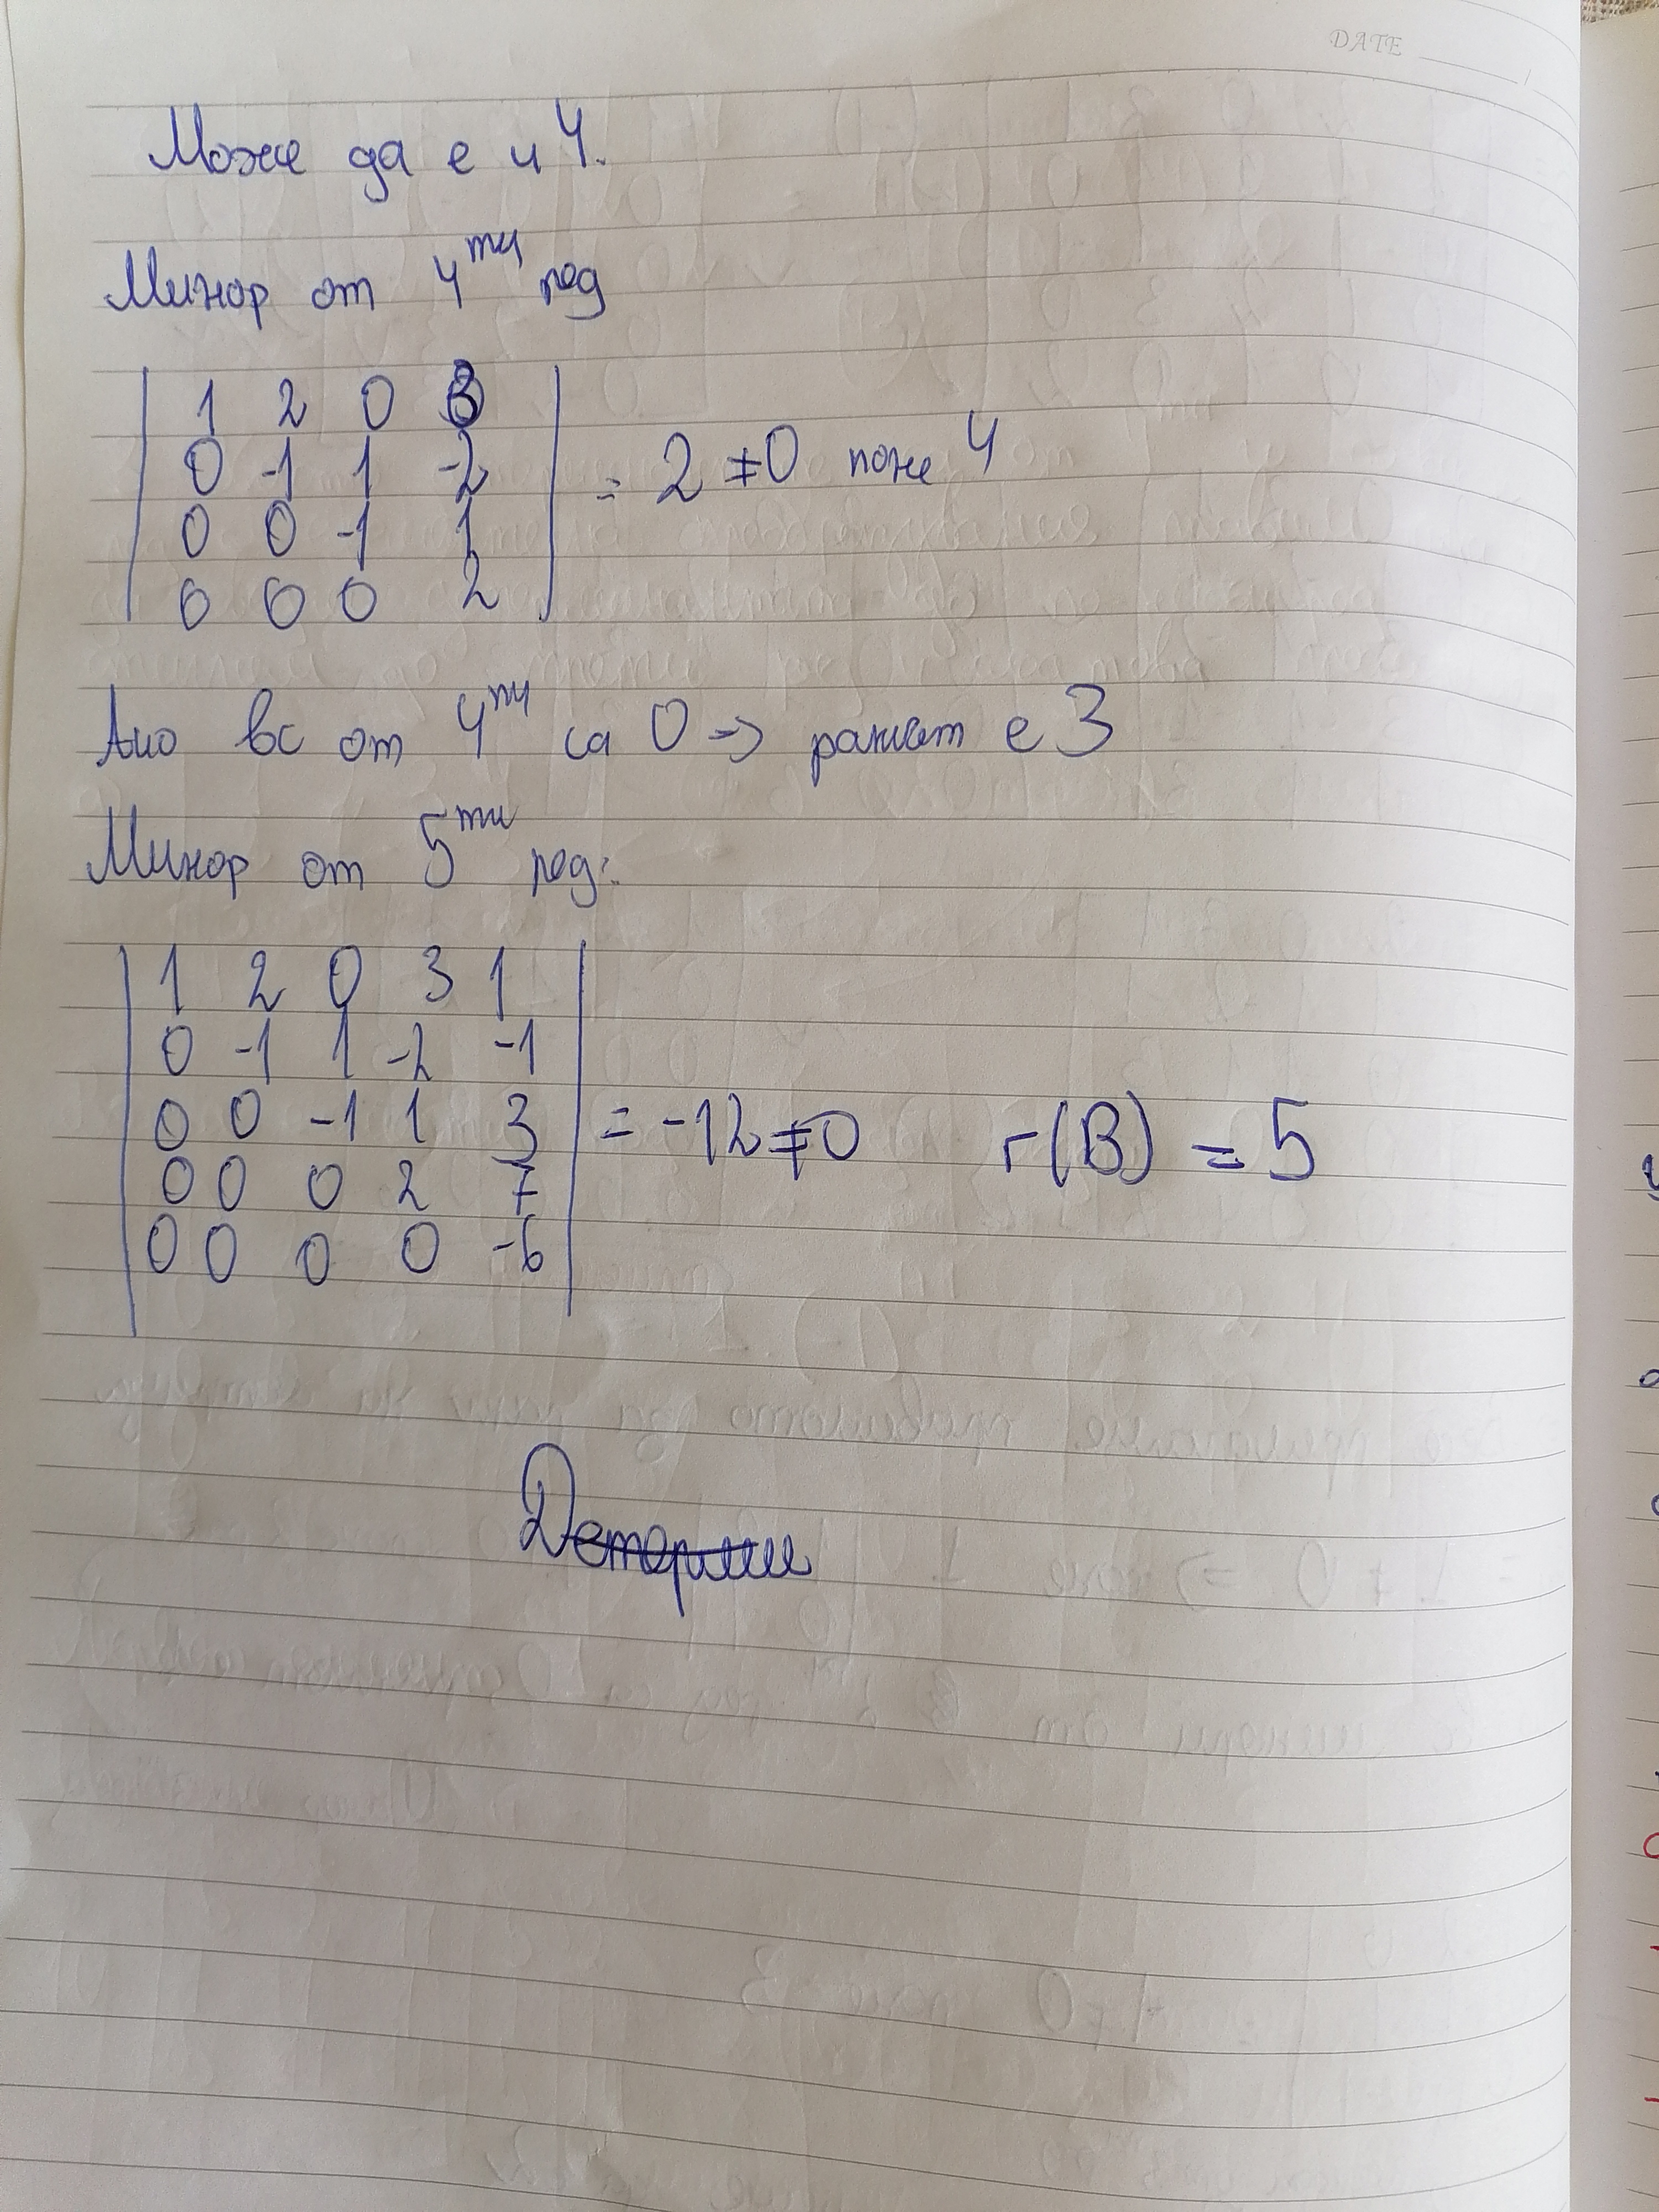 DATE
Може да е и 4.
Минор от 4ти ред
1 2 0 3
0 -1 1 -2
0 0 -1 1
0 0 0 2
= 2 ≠ 0 поне 4
Ако вс от 4ти са 0 => рангът е 3
Минор от 5ти ред:
1 2 0 3 1
0 -1 1 -2 -1
0 0 -1 1 3
0 0 0 2 7
0 0 0 0 -6
= -12 ≠ 0 r(B) = 5
Детерми